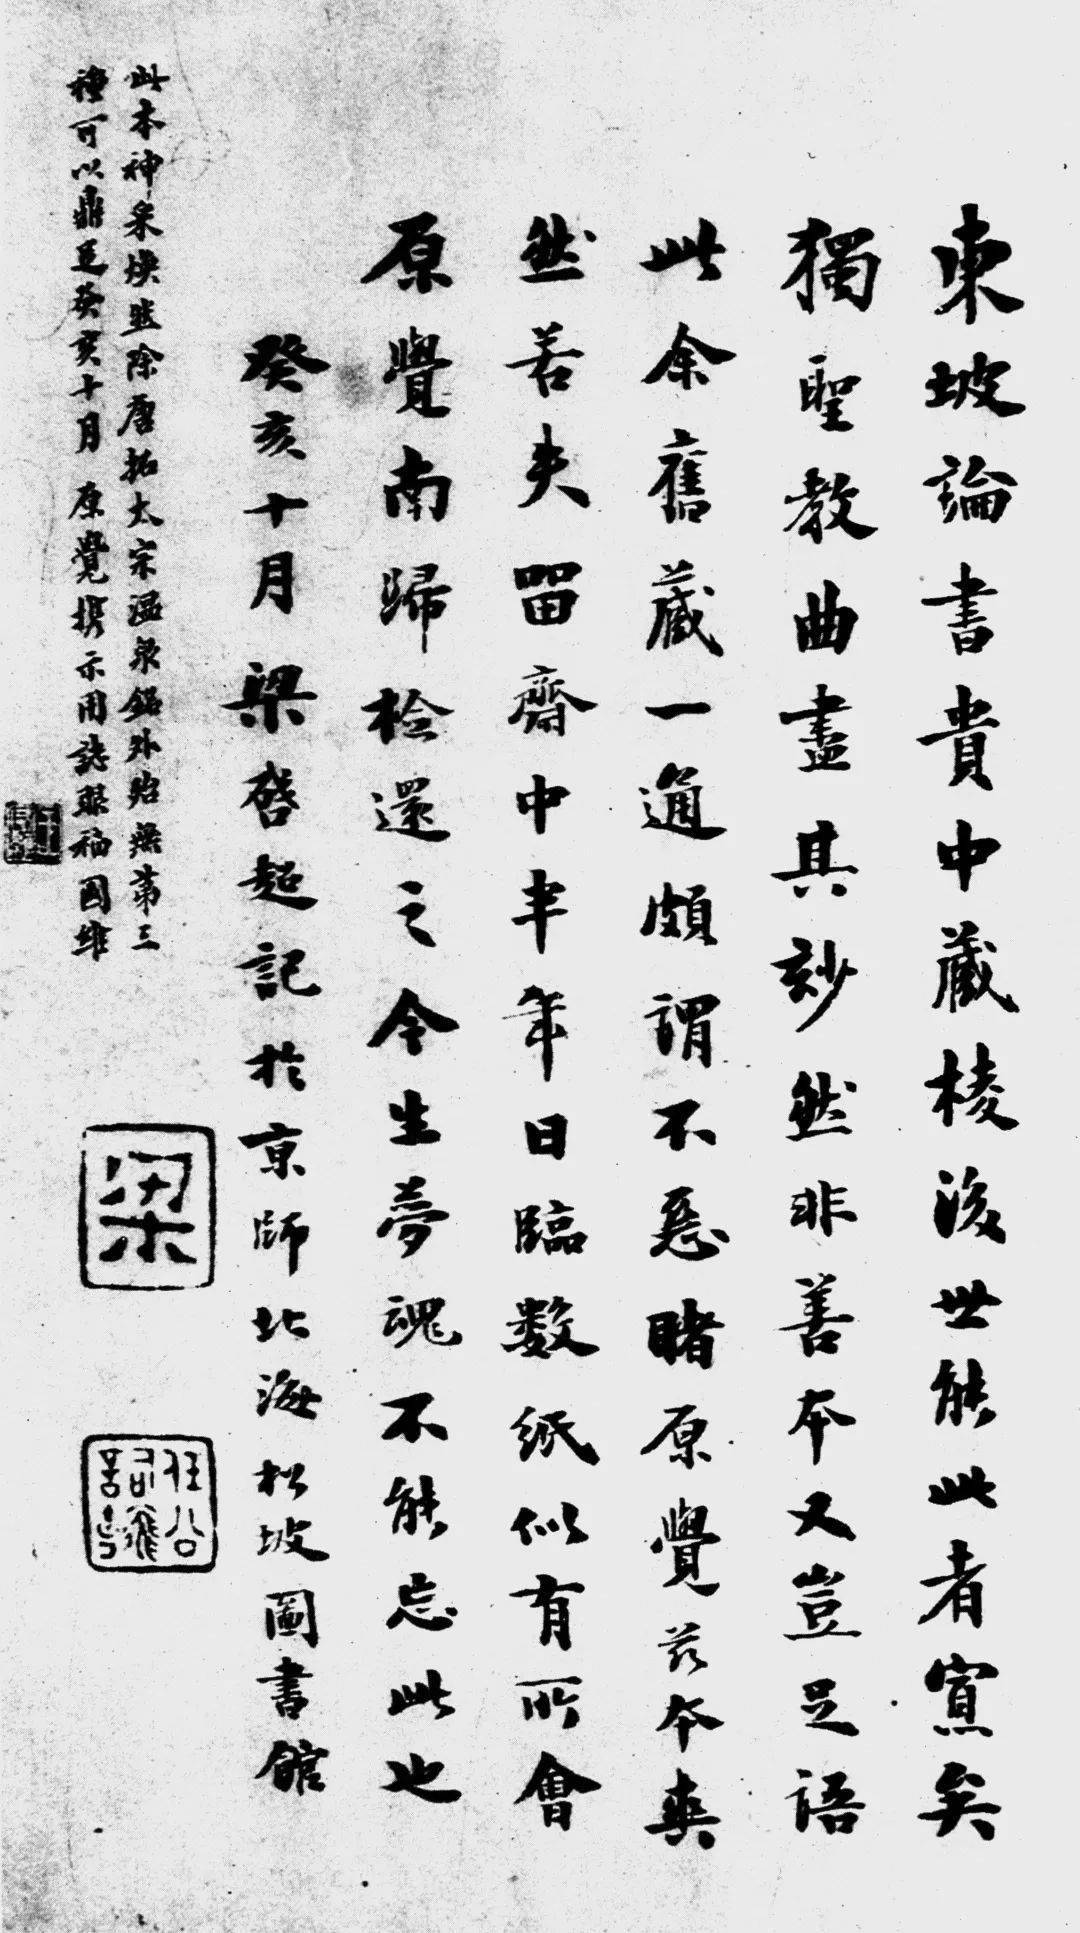 東坡論書貴中藏棱後世能此者寡矣
獨聖教曲盡其妙然非善本又豈足語
此余舊藏一通頗謂不惡睹原覺茲本爽
然若失留齋中半年日臨數紙似有所會
原覺南歸檢還之今生夢魂不能忘此也
癸亥十月梁啓超記於京師北海松坡圖書館
梁
任公
此本神采煥然除唐拓太宗溫泉銘外殆無第三
種可以鼎足癸亥十月原覺攜示用誌眼福國維